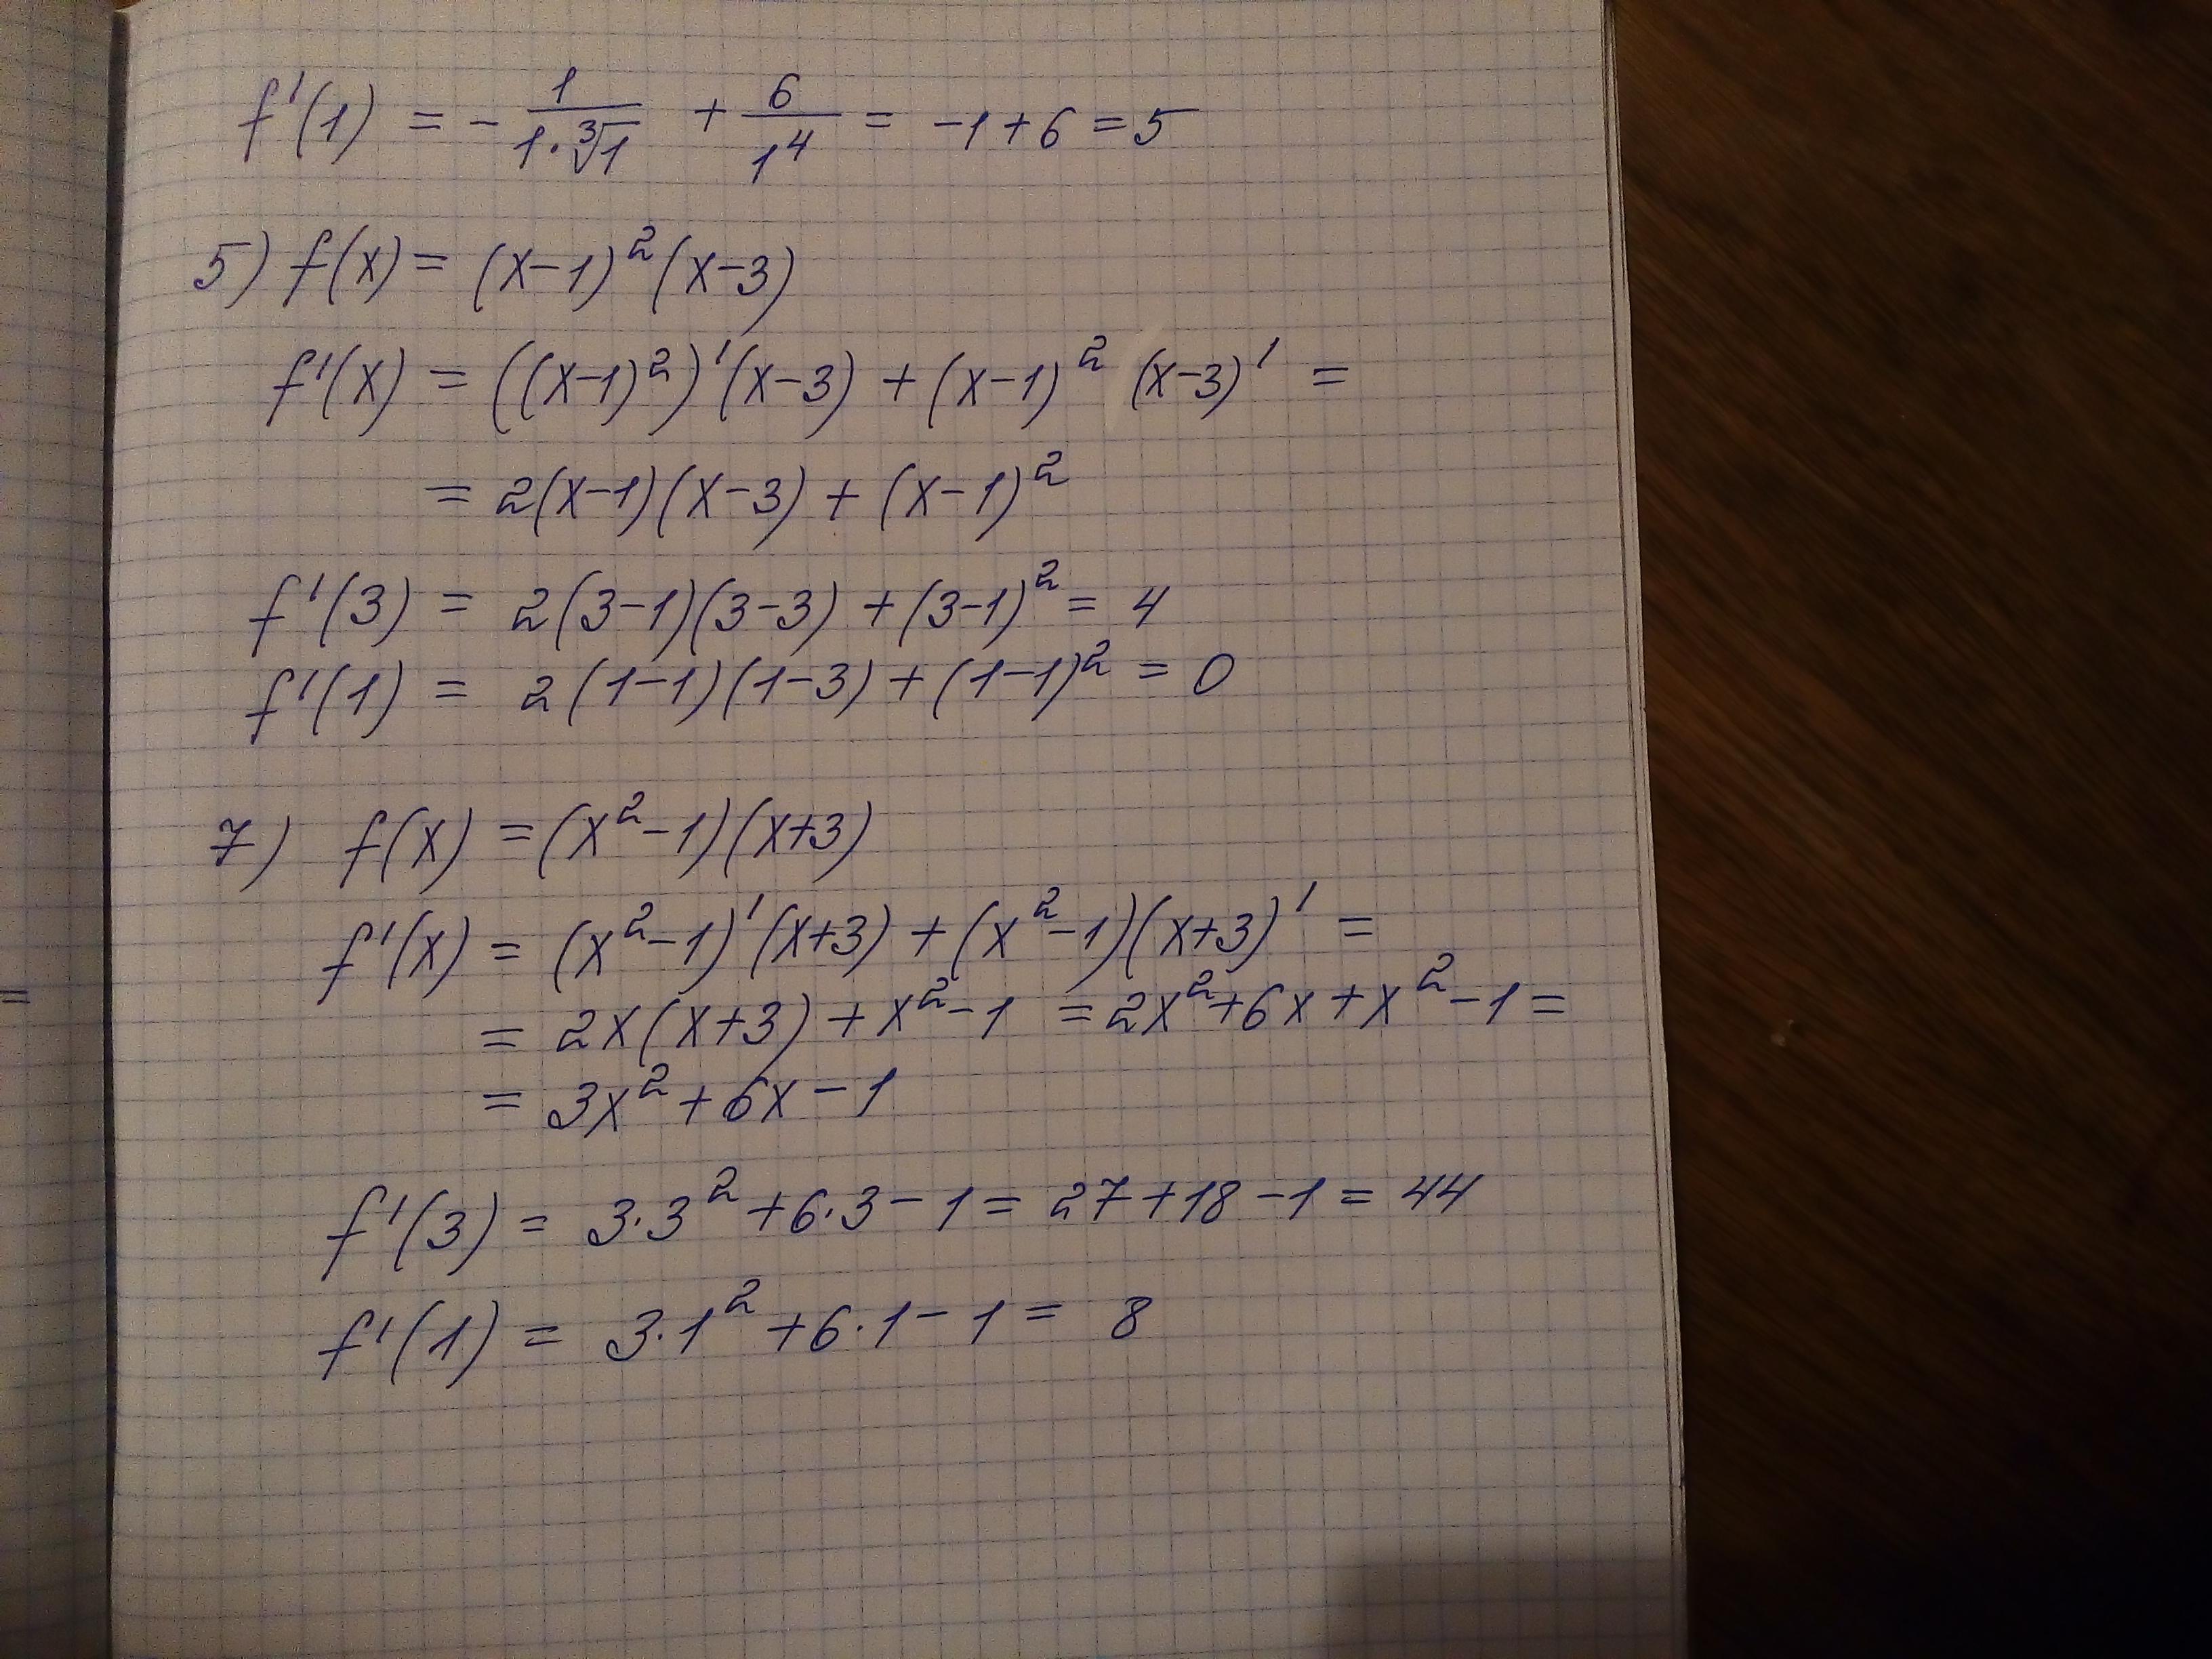 f'(1) = - 1/(1·∛1) + 6/1⁴ = -1+6=5
5) f(x)= (x-1)²(x-3)
f'(x) = ((x-1)²)'(x-3) + (x-1)² (x-3)' =
= 2(x-1)(x-3) + (x-1)²
f'(3) = 2(3-1)(3-3) + (3-1)² = 4
f'(1) = 2(1-1)(1-3) + (1-1)² = 0
7) f(x) = (x²-1)(x+3)
f'(x) = (x²-1)'(x+3) + (x²-1)(x+3)' =
= 2x(x+3) + x²-1 = 2x²+6x+x²-1 =
= 3x²+6x-1
f'(3) = 3·3²+6·3-1 = 27+18-1 = 44
f'(1) = 3·1²+6·1-1 = 8
=